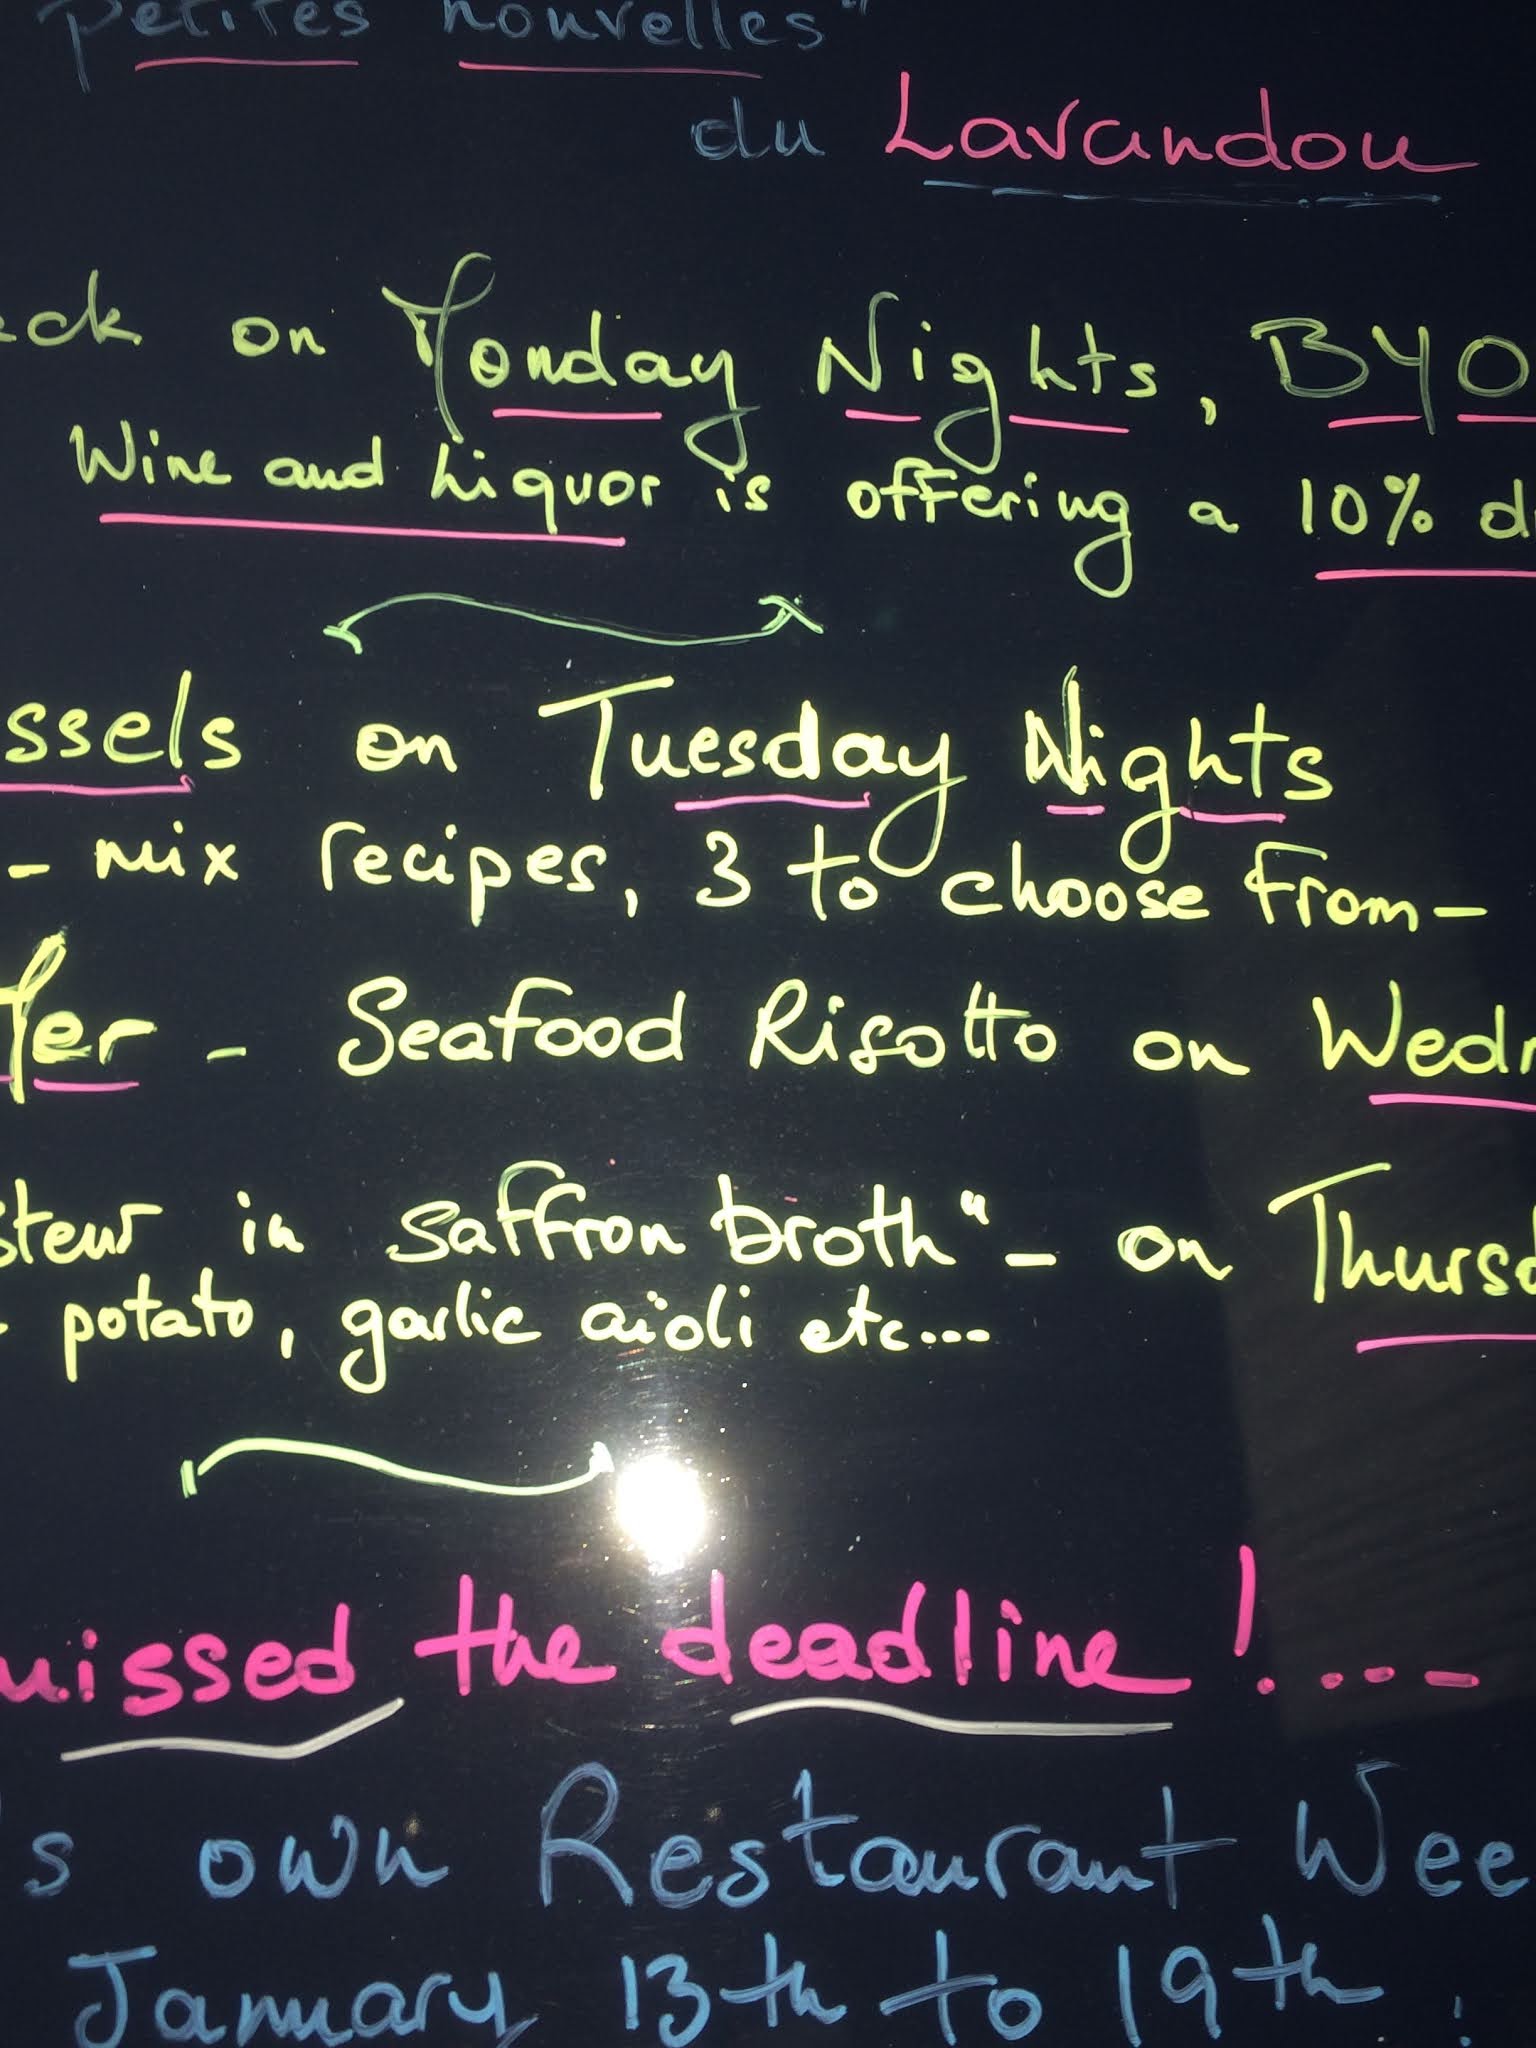 petites nouvelles"
du Lavandou
eck on Monday Nights, BYO
Wine and Liquor is offering a 10% d
ssels on Tuesday Nights
- mix recipes, 3 to choose from -
Mer - Seafood Risotto on Wedn
steur in saffron broth" - on Thursd
potato, garlic aïoli etc...
missed the deadline!....
's own Restaurant Wee
January 13th to 19th